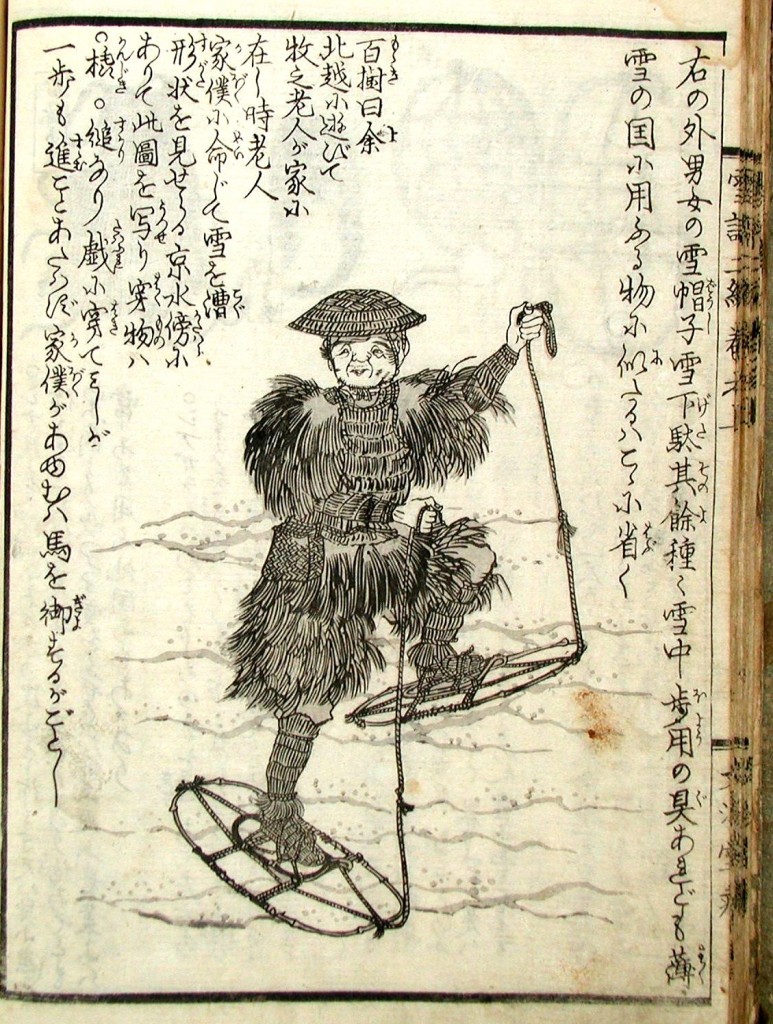 右の外男女の雪帽子雪下駄其余種々雪中歩用の具あれども薄
雪の国に用ふる物に似たるハこゝに省く
百樹曰余
北越に遊びて
牧之老人が家に
在し時老人
家僕に命じて雪を漕
形状を見せらる京水傍に
ありて此圖を写り穿物ハ
○橇○縋なり戯に穿てミしが
一歩も進ことあたハず家僕があゆむハ馬を御するがごとし
雪譜二編巻